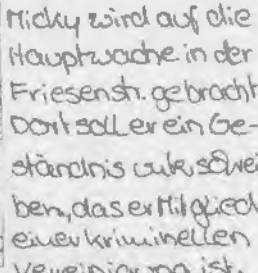 Micky wird auf die
Hauptwache in der
Friesenstr. gebracht
Dort soll er ein Ge-
ständnis unterschrei
ben, das er Mitglied
einer kriminellen
Vereinigung ist.